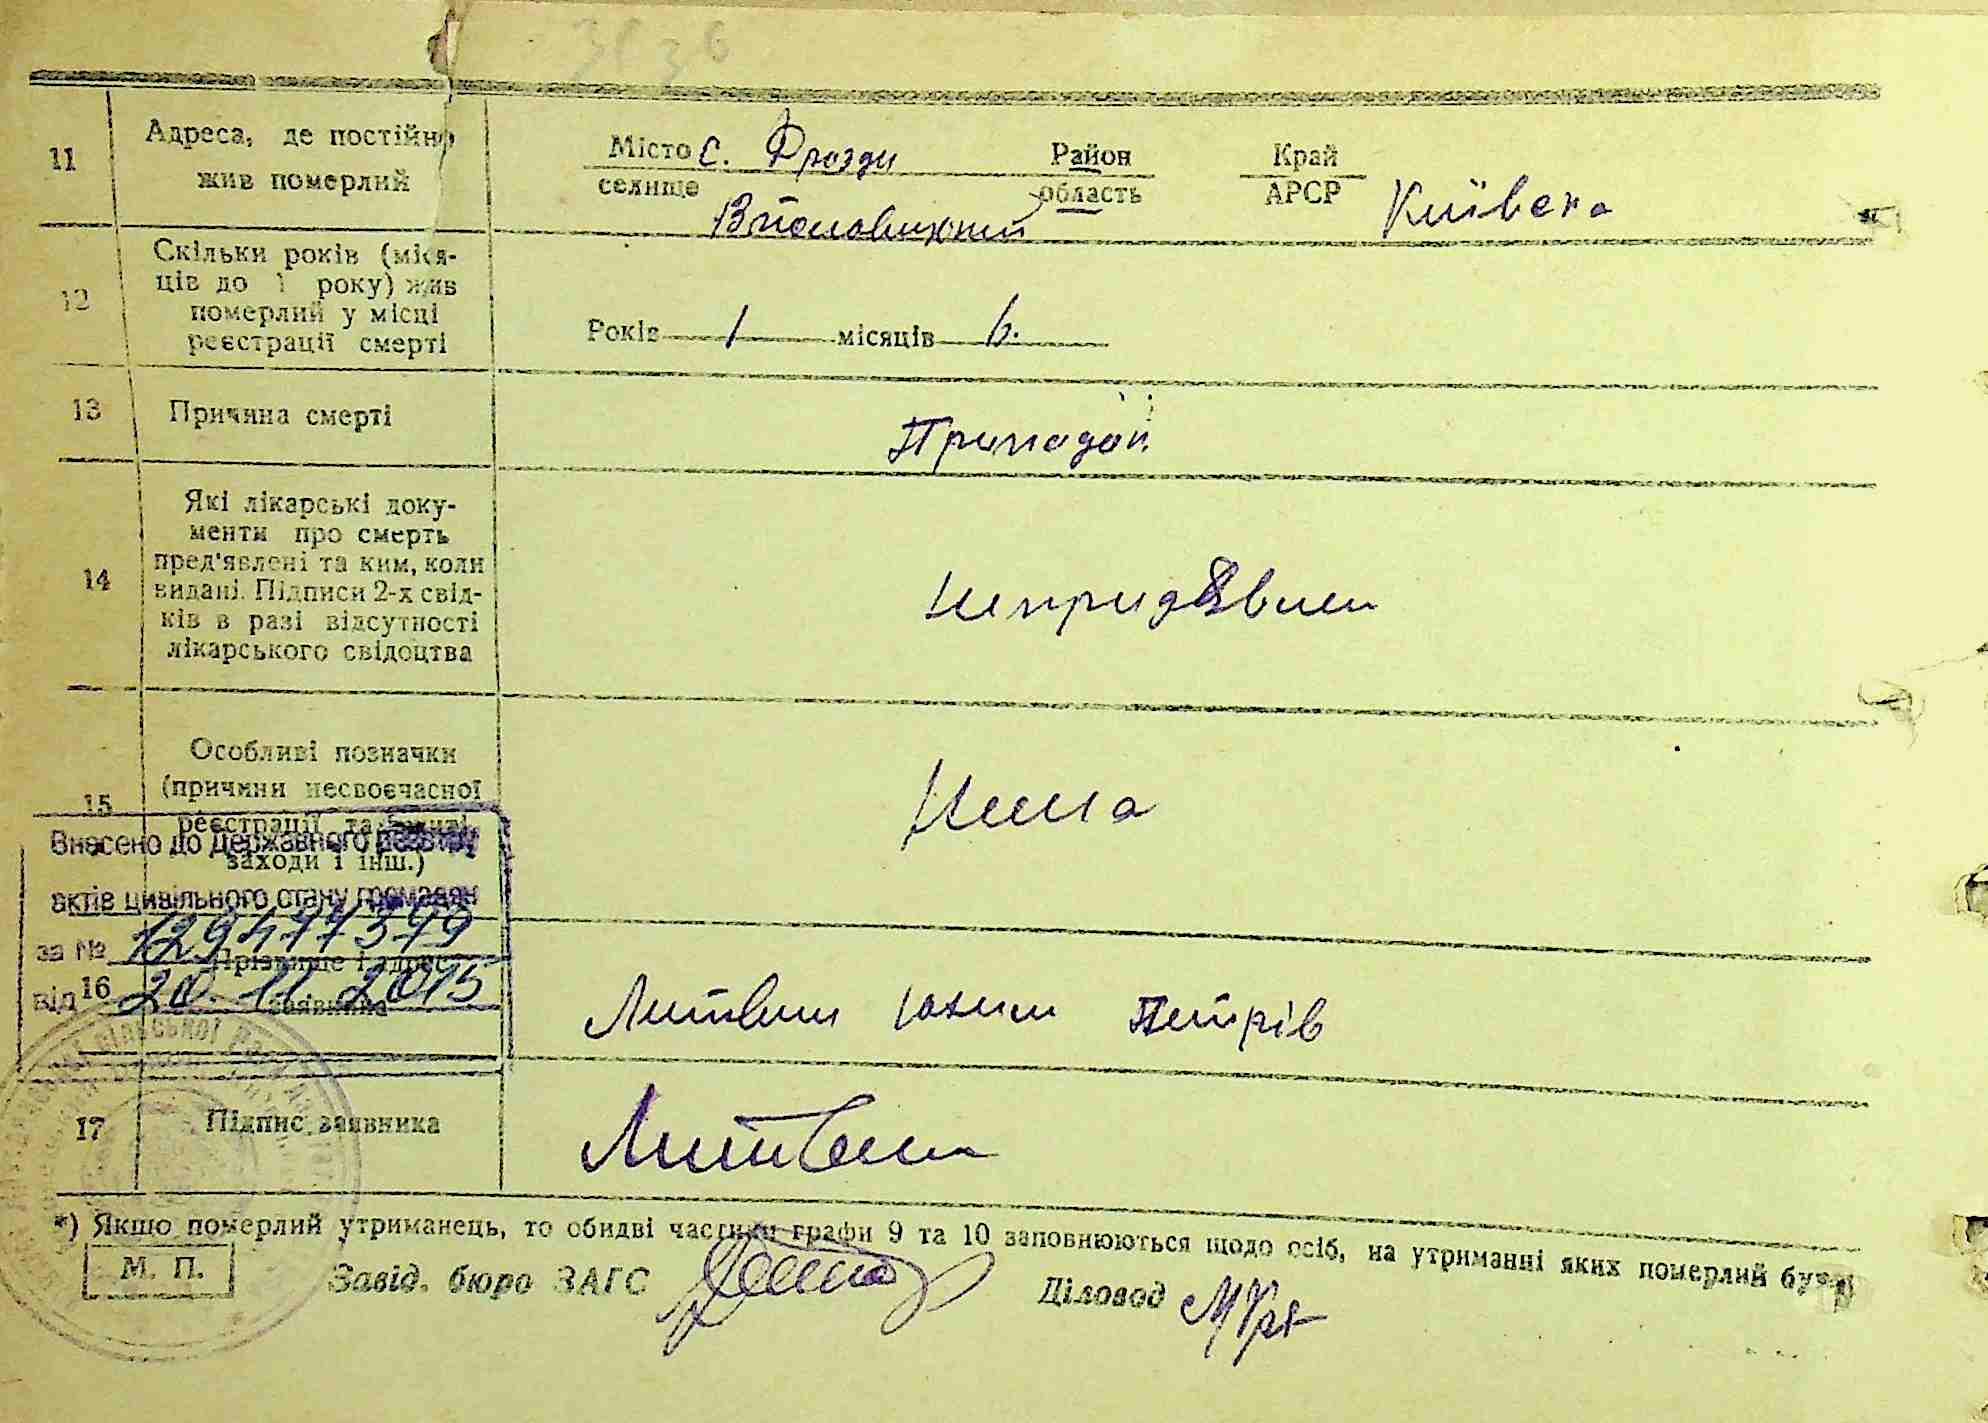 11
Адреса, де постійно
жив померлий
Місто с. Дрозди Район Край
селище область АРСР Київська
Вполовицький
12
Скільки років (міся-
ців до 1 року) жив
померлий у місці
реєстрації смерті
Років 1 місяців 6.
13
Причина смерті
14
Які лікарські доку-
менти про смерть
пред'явлені та ким, коли
видані. Підписи 2-х свід-
ків в разі відсутності
лікарського свідоцтва
15
Особливі позначки
(причини несвоєчасної
реєстрації та
заходи і інш.)
Нема
Внесено до Державного реєстру
актів цивільного стану громадян
за № 129477379
від 20.11.2015
16
Прізвище і адрес
заявника
Литвин Яким Петрів
17
Підпис заявника
Литвин
*) Якщо померлий утриманець, то обидві частини графи 9 та 10 заповнюються щодо осіб, на утриманні яких померлий був
М. П.
Завід. бюро ЗАГС
Діловод